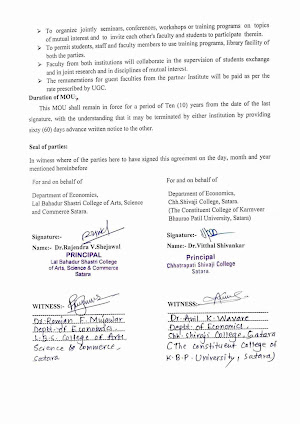 ➢ To organize jointly seminars, conferences, workshops or training programs on topics
of mutual interest and to invite each other's faculty and students to participate therein.
➢ To permit students, staff and faculty members to use training programs, library facility of
both the parties.
➢ Faculty from both institutions will collaborate in the supervision of students exchange
and in joint research and in disciplines of mutual interest.
➢ The remunerations for guest faculties from the partner Institute will be paid as per the
rate prescribed by UGC.
Duration of MOU,
This MOU shall remain in force for a period of Ten (10) years from the date of the last
signature, with the understanding that it may be terminated by either institution by providing
sixty (60) days advance written notice to the other.
Seal of parties:
In witness where of the parties here to have signed this agreement on the day, month and year
mentioned hereinbefore
For and on behalf of
Department of Economics,
Lal Bahadur Shastri College of Arts, Science
and Commerce Satara.
Signature:-
Name:- Dr.Rajendra V.Shejawal
PRINCIPAL
Lal Bahadur Shastri College
of Arts, Science & Commerce
Satara
For and on behalf of
Department of Economics,
Chh.Shivaji College, Satara.
(The Constituent College of Karmveer
Bhaurao Patil University, Satara)
Signature:-
Name:- Dr.Vitthal Shivankar
Principal
Chhatrapati Shivaji College
Satara.
WITNESS:-
Dr. Romjan F. Mujawar
Deptt. of Economics,
L.B.S. College of Arts
Science & Commerce,
Satara
WITNESS:-
Dr. Anil K. Wavare
Deptt. of Economics,
Chh. Shivaji College, Satara
(The constituent College of
K.B.P. University, Satara)